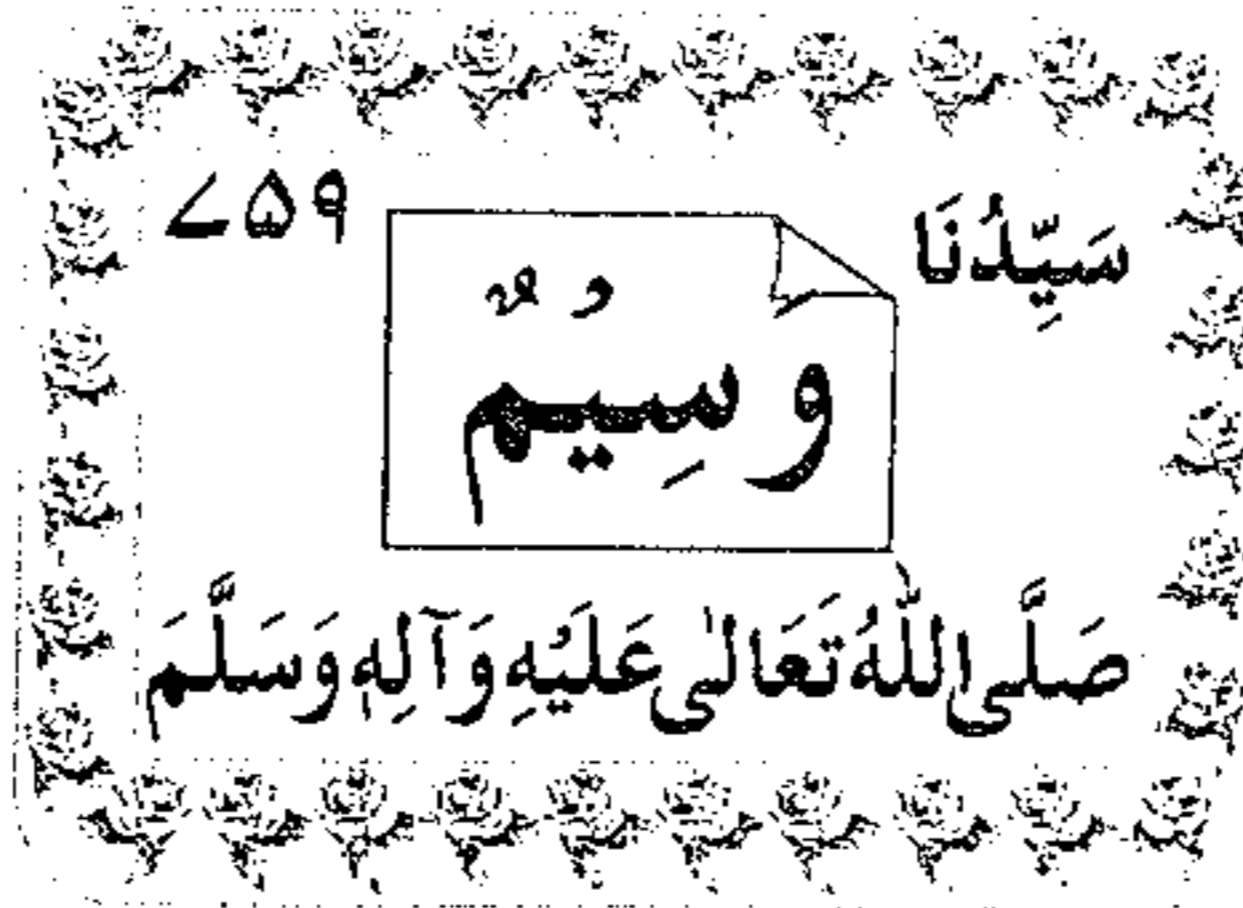 سَيِّدُنَا
۷۵۹
وَسِيْمٌ
صَلَّى اللّٰهُ تَعَالٰى عَلَيْهِ وَآلِهٖ وَسَلَّمَ